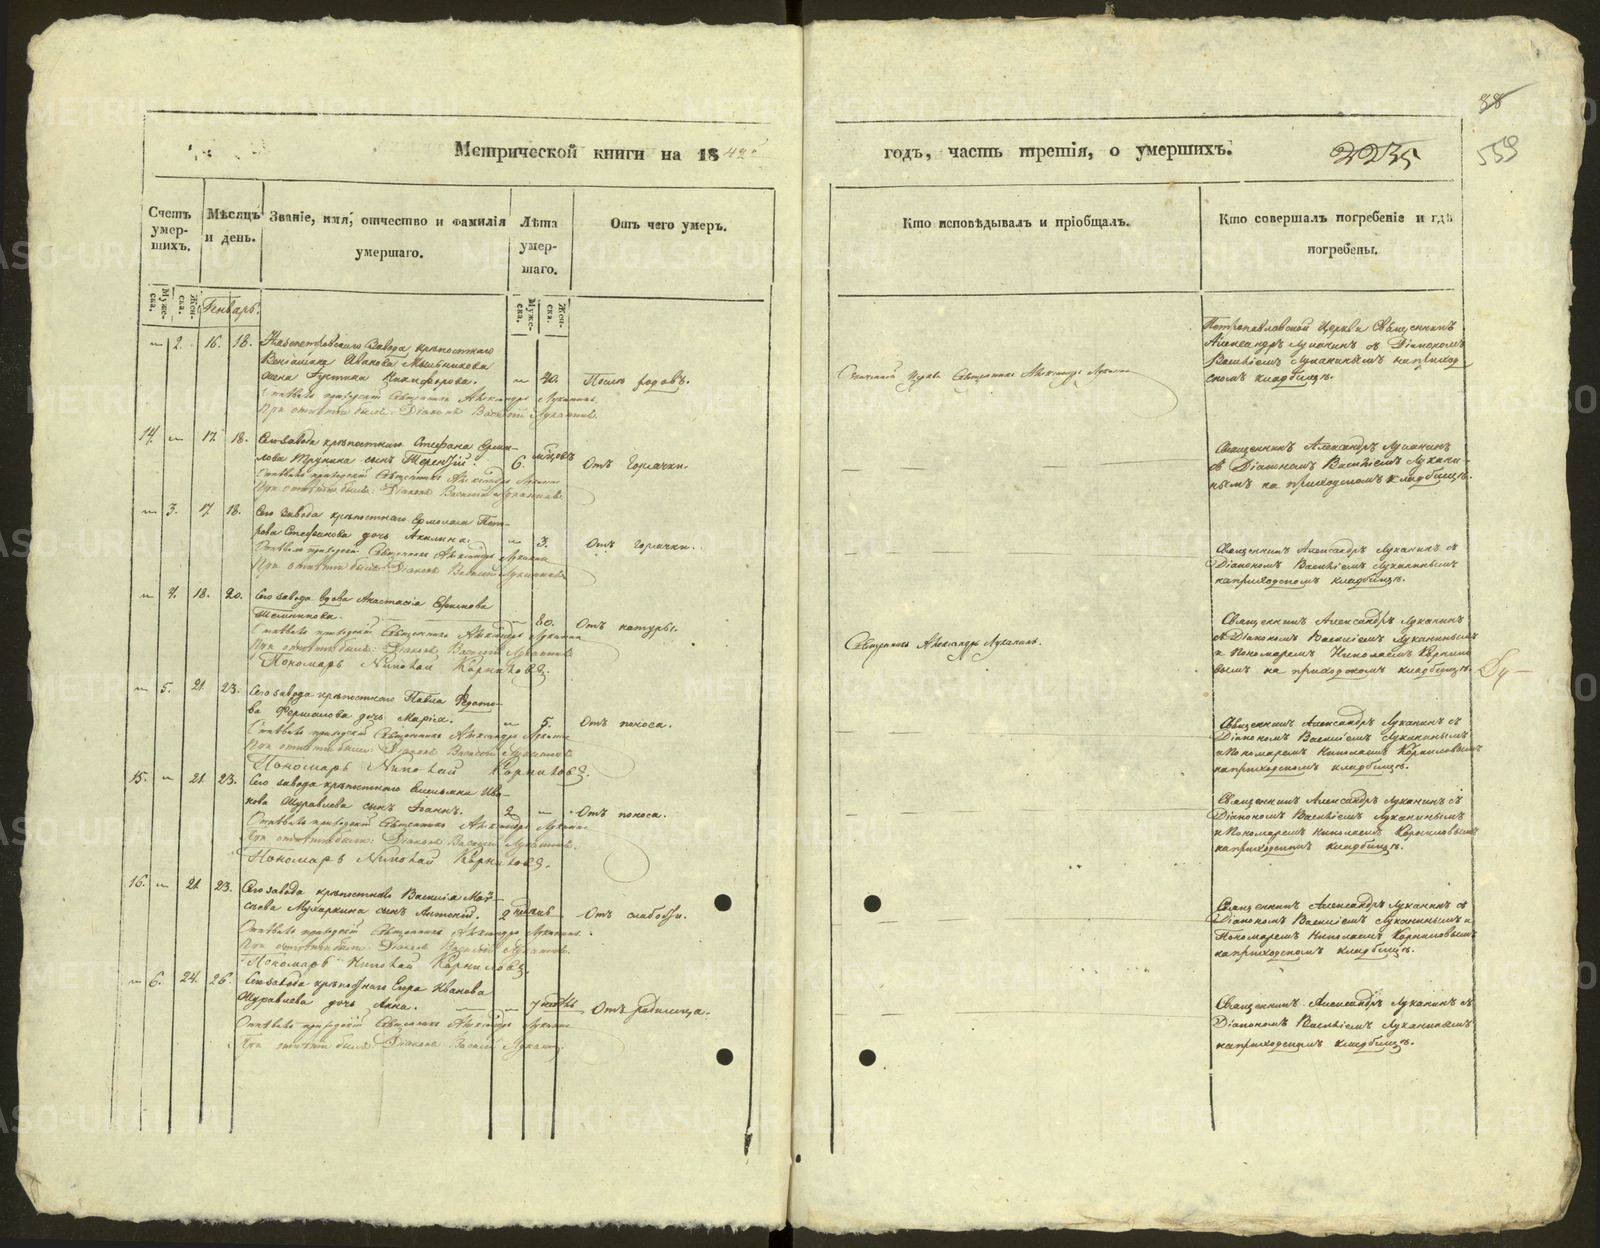 88
559
2235
Метрической книги на 1842й
годъ, часть третія, о умершихъ.
Счетъ умер- шихъ.
Мѣсяцъ и день.
Званіе, имя, отчество и фамилія умершаго.
Лѣта умер- шаго.
Отъ чего умеръ.
Кто исповѣдывалъ и пріобщалъ.
Кто совершалъ погребеніе и гдѣ погребены.
Муже- ска.
Жен- ска.
Генварь.
Муже- ска.
Жен- ска.
2. 16. 18.
завода крѣпостнаго
Веніамина Иванова Мыльникова
жена Густина Никифорова. 40. Послѣ родовъ.
Отпѣвалъ приходскій Священникъ Александръ Луканинъ.
При отпѣтіи былъ: Діаконъ Василій Луканинъ.
Священникъ Александръ Луканинъ
Петропавловской Церкви Священникъ
Александръ Луканинъ съ Діакономъ
Василіемъ Луканинымъ на приход
скомъ кладбищѣ.
14. 17. 18. Сего завода крѣпостнаго Стефана
сынъ Терентій. 6. мѣсяцъ Отъ Горячки.
Отпѣвалъ приходскій Священникъ Александръ Луканинъ
При отпѣтіи былъ: Діаконъ Василій Луканинъ.
Священникъ Александръ Луканинъ
съ Діакономъ Василіемъ Лукани-
нымъ на приходскомъ кладбищѣ.
3. 17. 18. Сего завода крѣпостнаго Ермолая Пет-
рова Стефанова дочь Акилина. 3. Отъ Горячки.
Отпѣвалъ приходскій Священникъ Александръ Луканинъ
При отпѣтіи былъ: Діаконъ Василій Луканинъ.
Священникъ Александръ Луканинъ съ
Діакономъ Василіемъ Луканинымъ
на приходскомъ кладбищѣ.
4. 18. 20. Сего завода вдова Анастасія Ефимова
80. Отъ натуры.
Отпѣвалъ приходскій Священникъ Александръ Луканинъ
При отпѣтіи были: Діаконъ Василій Луканинъ
Пономарь Николай Корниловъ.
Священникъ Александръ Луканинъ.
Священникъ Александръ Луканинъ
съ Діакономъ Василіемъ Луканинымъ
и Пономаремъ Николаемъ Корнило
вымъ на приходскомъ кладбищѣ.
5. 21. 23. Сего завода крѣпостнаго Павла Ѳедото-
ва дочь Марія. 5. Отъ поноса.
Отпѣвалъ приходскій Священникъ Александръ Луканинъ
При отпѣтіи были: Діаконъ Василій Луканинъ
Пономарь Николай Корниловъ.
Священникъ Александръ Луканинъ съ
Діакономъ Василіемъ Луканинымъ
и Пономаремъ Николаемъ Корниловымъ
на приходскомъ кладбищѣ.
15. 21. 23. Сего завода крѣпостнаго Емельяна Ива-
нова Журавлева сынъ Іоаннъ. 2 Отъ поноса.
Отпѣвалъ приходскій Священникъ Александръ Луканинъ
При отпѣтіи были: Діаконъ Василій Луканинъ.
Пономарь Николай Корниловъ.
Священникъ Александръ Луканинъ съ
Діакономъ Василіемъ Луканинымъ
и Пономаремъ Николаемъ Корниловымъ
на приходскомъ кладбищѣ.
16. 21. 23. Сего завода крѣпостнаго Василія Мои-
сѣева Мухаркина сынъ Антоній. 2 недѣль Отъ слабости.
Отпѣвалъ приходскій Священникъ Александръ Луканинъ.
При отпѣтіи были: Діаконъ Василій Луканинъ.
Пономарь Николай Корниловъ.
Священникъ Александръ Луканинъ съ
Діакономъ Василіемъ Луканинымъ и
Пономаремъ Николаемъ Корниловымъ
на приходскомъ кладбищѣ.
6. 24. 26. Сего завода крѣпостнаго Егора Иванова
Журавлева дочь Анна. 7 Отъ родимца.
Отпѣвалъ приходскій Священникъ Александръ Луканинъ
При отпѣтіи былъ: Діаконъ Василій Луканинъ.
Священникъ Александръ Луканинъ съ
Діакономъ Василіемъ Луканинымъ
на приходскомъ кладбищѣ.
METRIKI.GASO-URAL.RU